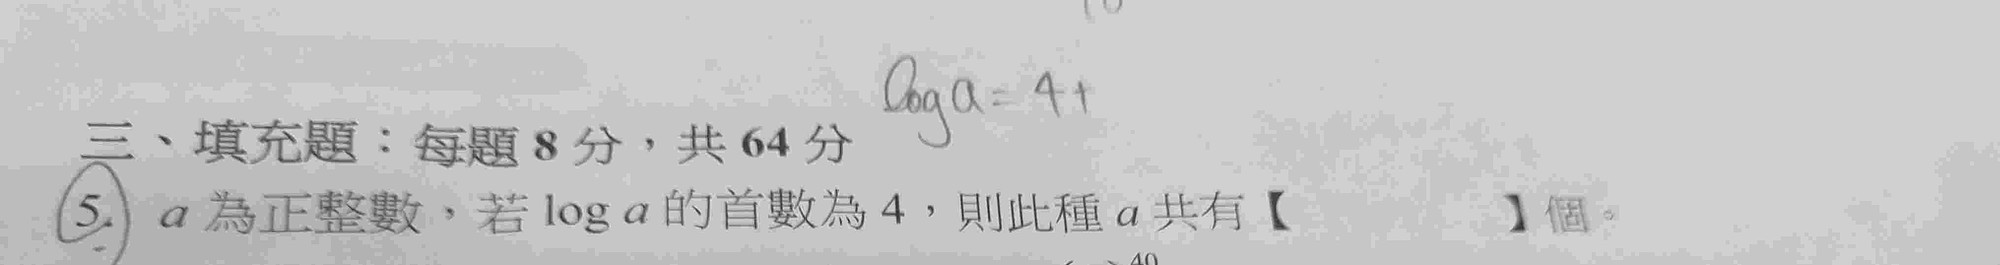 log a = 4 +
三、填充題：每題 8 分，共 64 分
5. a 為正整數，若 log a 的首數為 4，則此種 a 共有【　　　　】個。
40